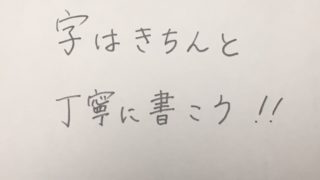 字はきちんと
丁寧に書こう!!